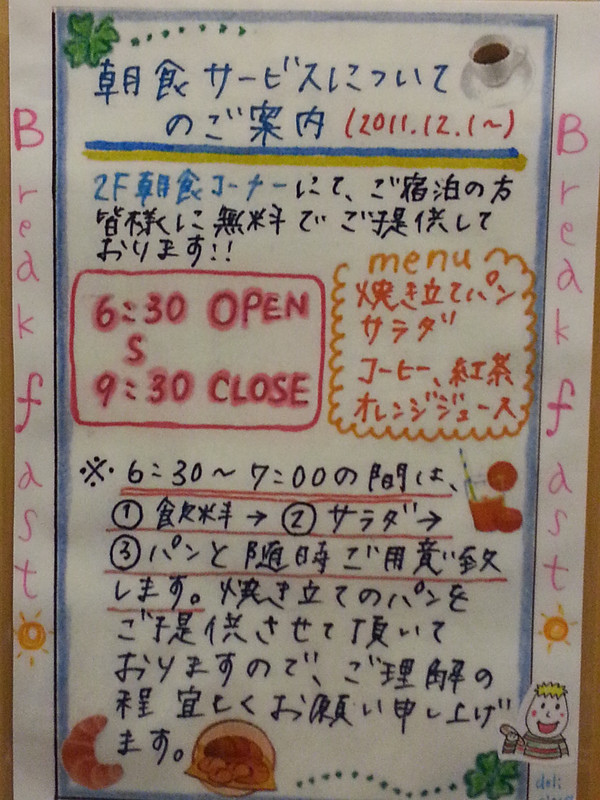 朝食サービスについて
のご案内 (2011.12.1〜)
2F朝食コーナーにて、ご宿泊の方
皆様に無料でご提供して
おります!!
6:30 OPEN
S
9:30 CLOSE
menu
焼き立てパン
サラダ
コーヒー、紅茶
オレンジジュース
※6:30〜7:00の間は、
①飲料→②サラダ→
③パンと随時ご用意致
します。焼き立てのパンを
ご提供させて頂いて
おりますので、ご理解の
程宜しくお願い申し上げ
ます。
Breakfast
Breakfast
deli